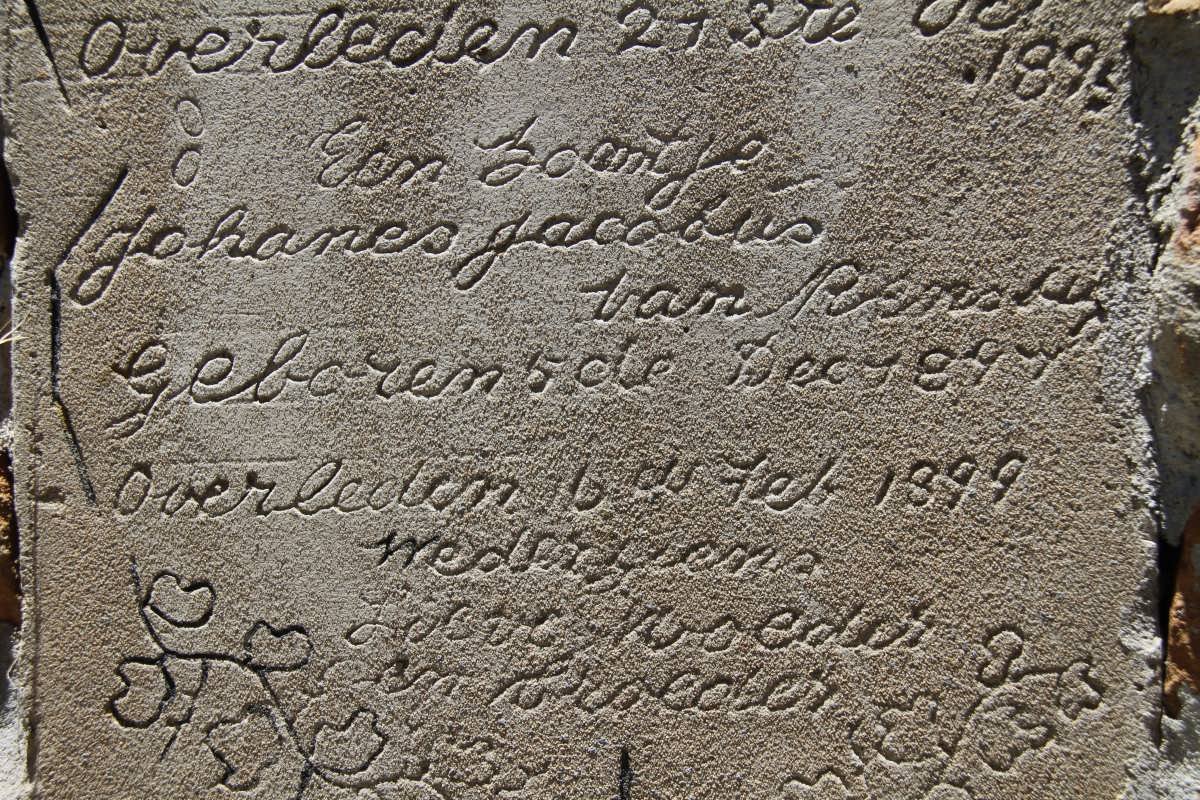 Overleden 27 Ste De
1895
Een Zoontje
Johanes Jacobus
van Rensb
Geboren 5 de Dec 1897
Overleden 6 de Feb 1899
Wedersiens
Moeder
en Broeder